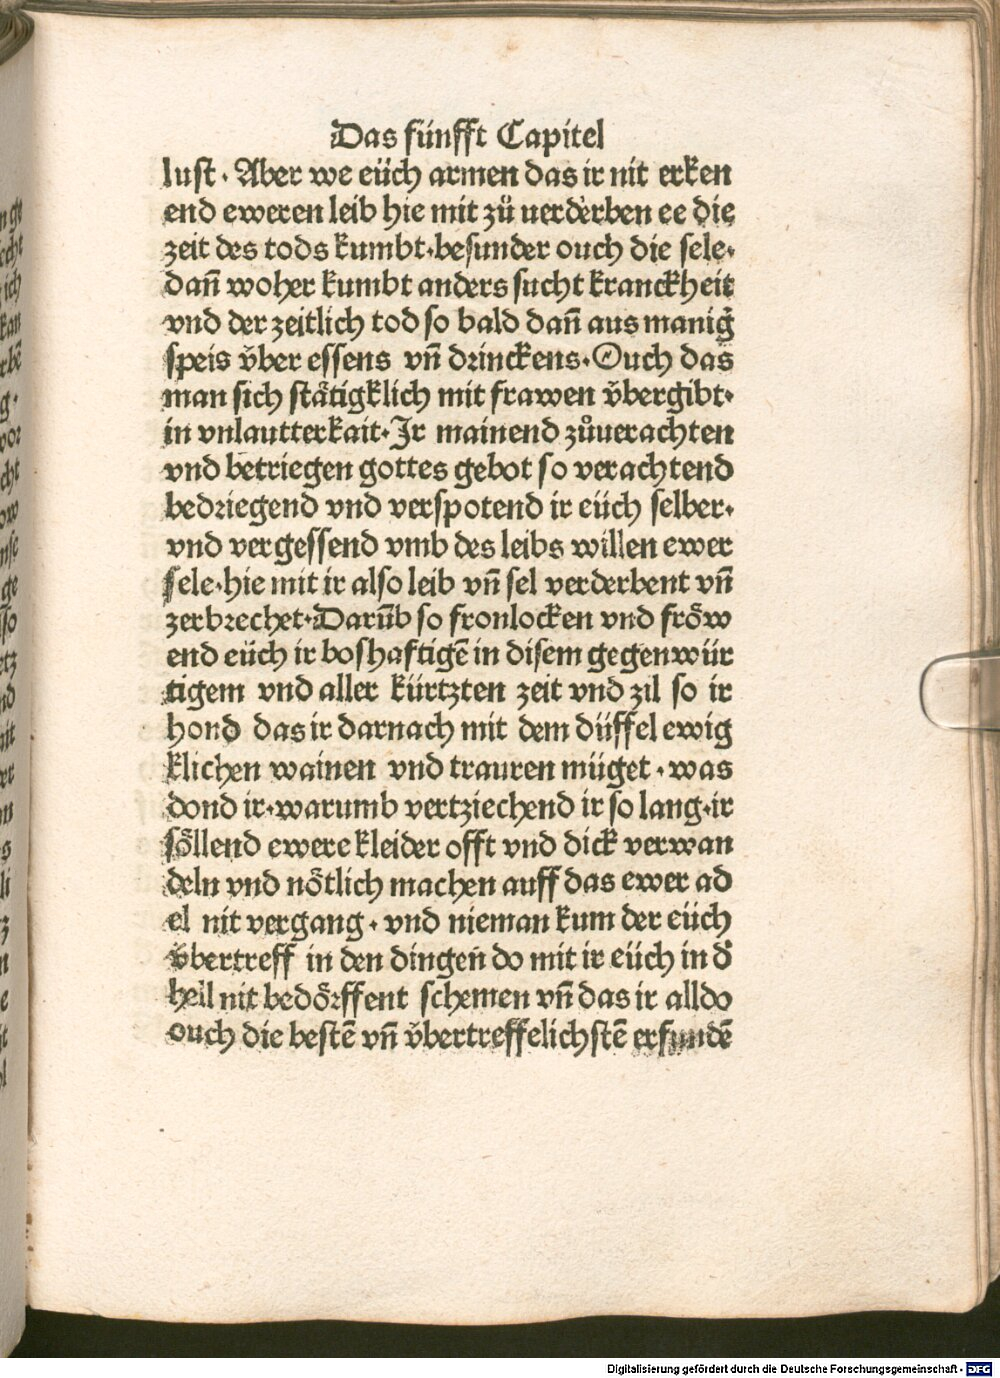 Das fünfft Capitel
lust· Aber we eüch armen das ir nit erken
end eweren leib hie mit zů uerderben ee die
zeit des tods kumbt·besunder ouch die sele·
dañ woher kumbt anders sucht kranckheit
vnd der zeitlich tod so bald dañ aus manig̃
speis v̈ber essens vñ drinckens·Ouch das
man sich stätigklich mit frawen v̈bergibt·
in vnlautterkait·Jr mainend zůuerachten
vnd betriegen gottes gebot so verachtend
bedriegend vnd verspotend ir eüch selber·
vnd vergessend vmb des leibs willen ewer
sele·hie mit ir also leib vñ sel verderbent vñ
zerbrechet·Darũb so fronlocken vnd fröw
end eüch ir boshaftigẽ in disem gegenwür
tigem vnd aller kürtzten zeit vnd zil so ir
hond das ir darnach mit dem düffel ewig
klichen wainen vnd trauren müget·was
dond ir·warumb vertziechend ir so lang·ir
söllend ewere kleider offt vnd dick verwan
deln vnd nötlich machen auff das ewer ad
el nit vergang·vnd nieman kum der eüch
v̈bertreff in den dingen do mit ir eüch in d̕
hell nit bedörffent schemen vñ das ir alldo
ouch die bestẽ vñ v̈bertreffelichstẽ erfundẽ
Digitalisierung gefördert durch die Deutsche Forschungsgemeinschaft - DFG